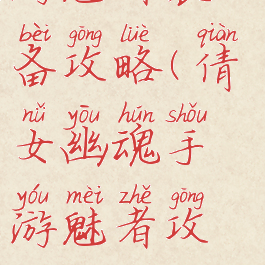 bèi gōng lüè qiàn
备攻略(倩
nǚ yōu hún shǒu
女幽魂手
yóu mèi zhě gōng
游魅者攻